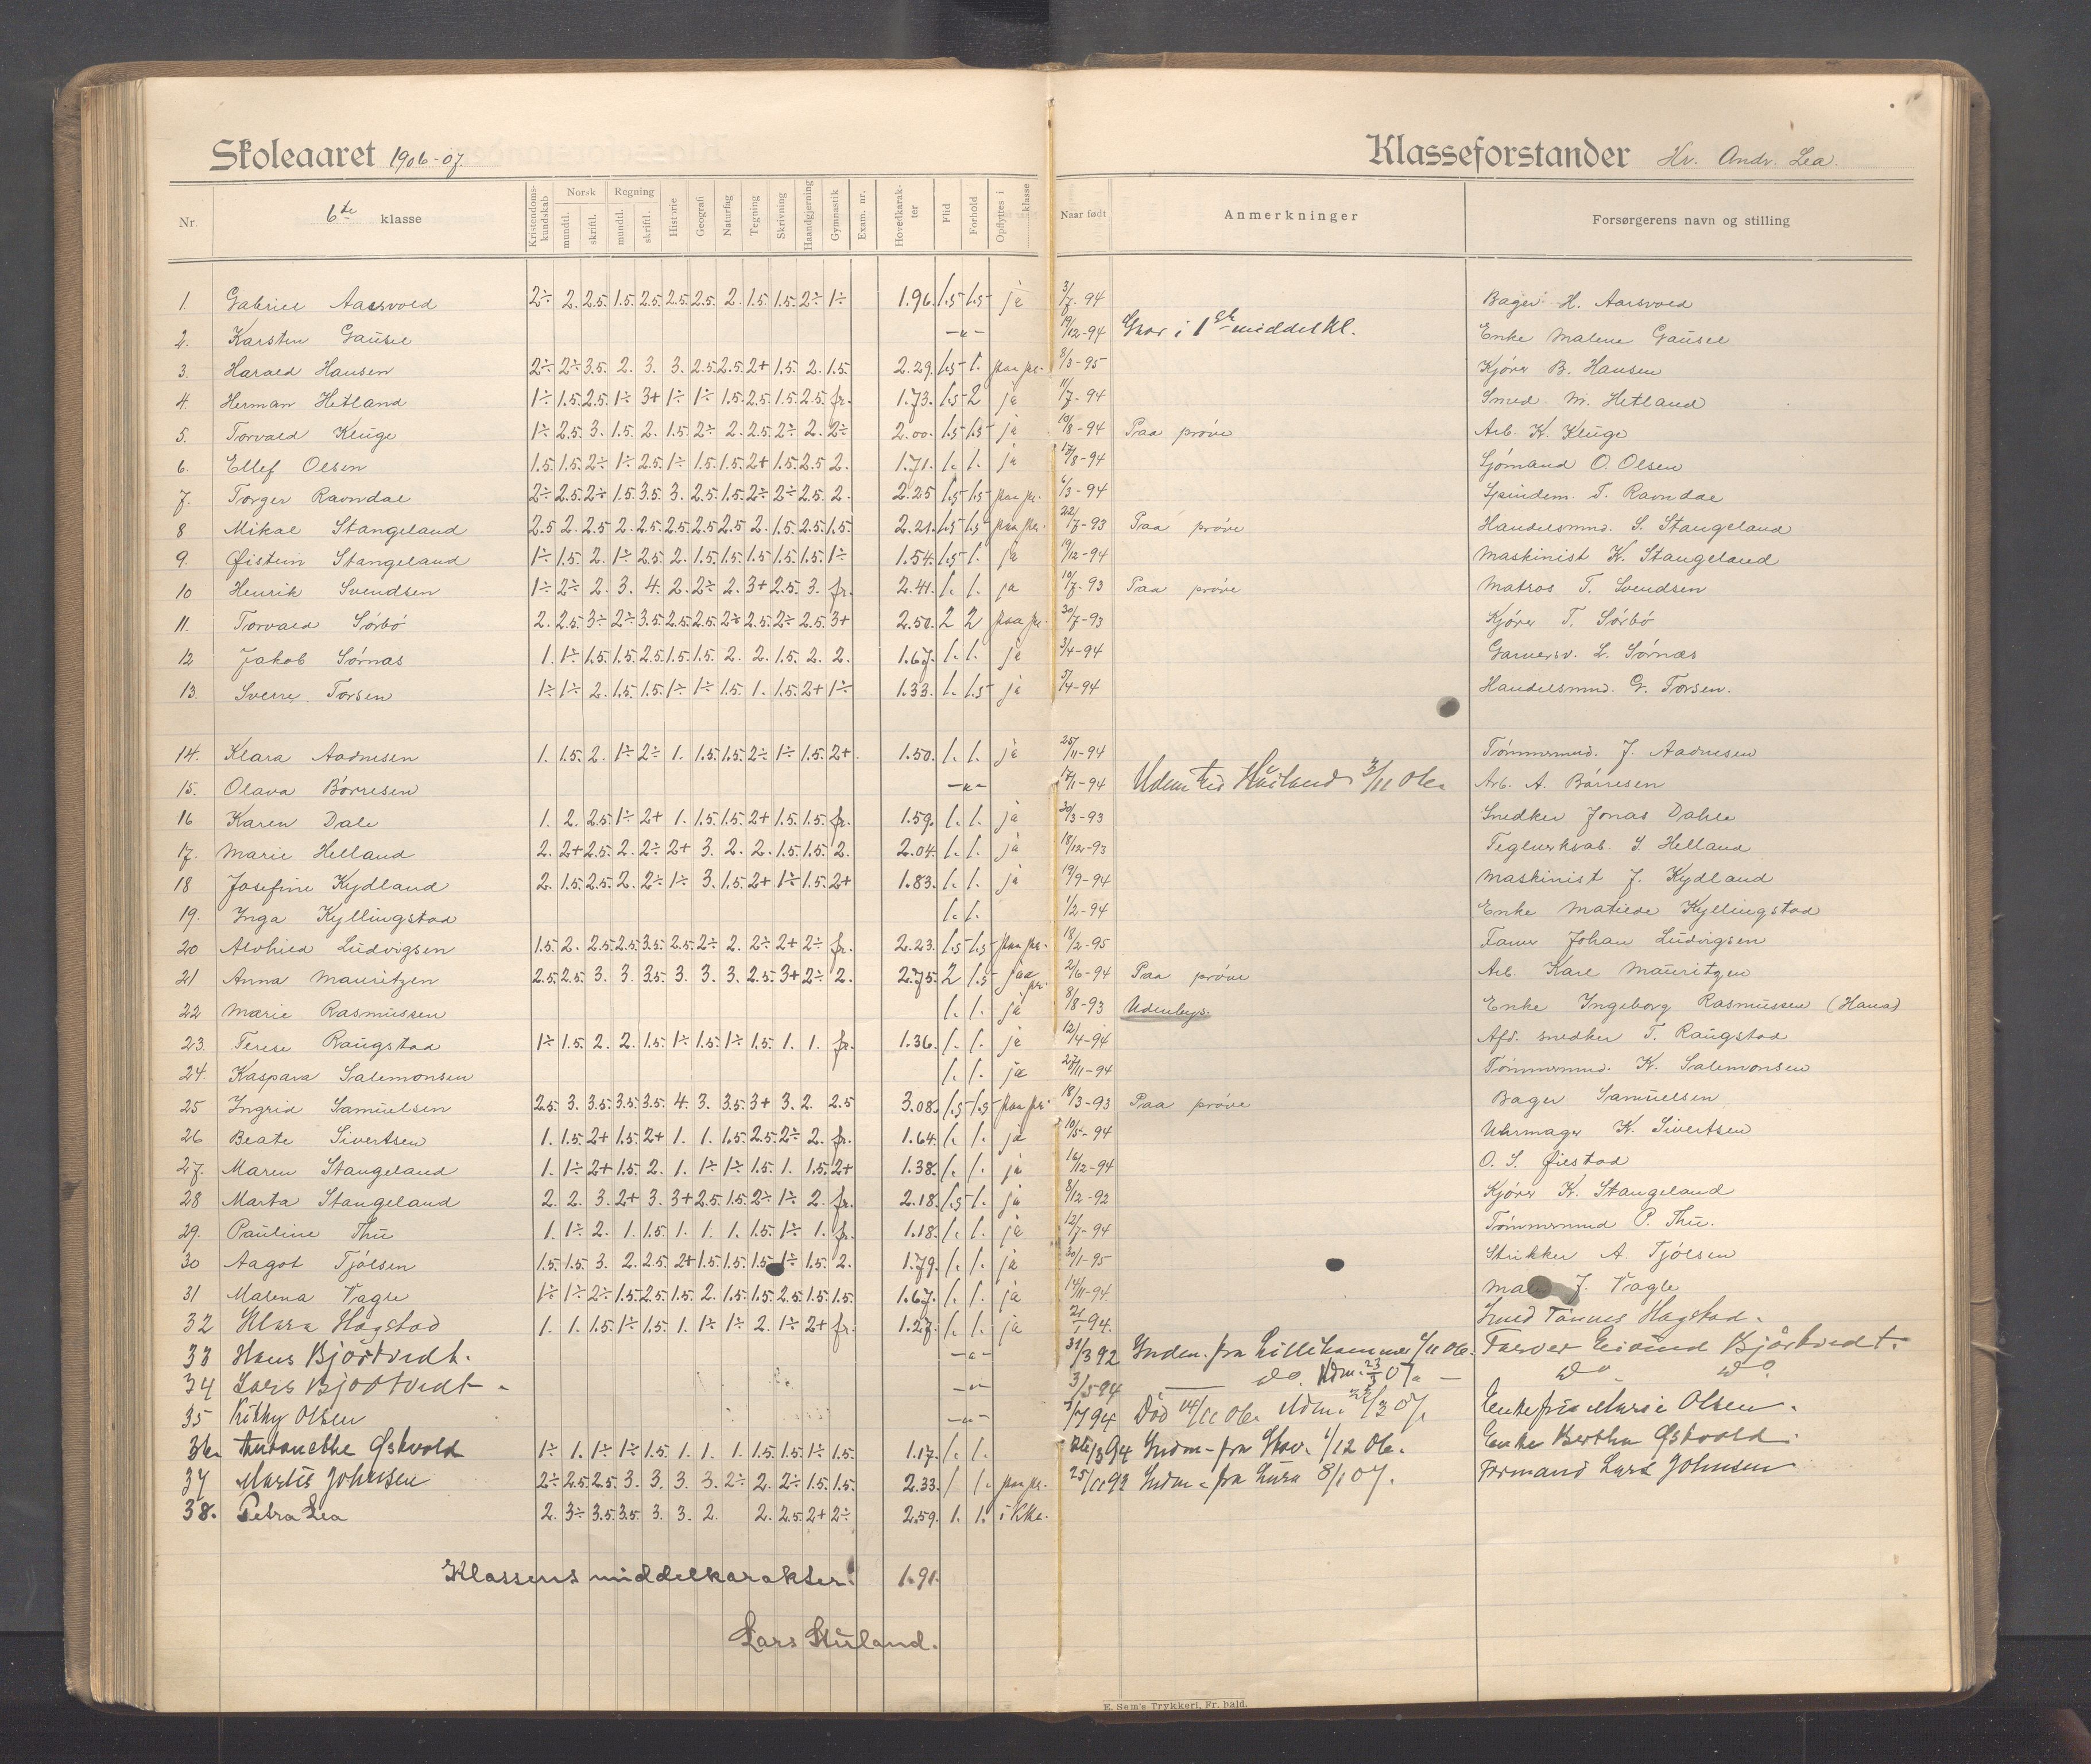 Skoleaaret 1906-07.
Klasseforstander Hr. Andr. Lea.
Nr. 6te klasse Kristendoms-kundskab Norsk mundtl. skriftl. Regning mundtl. skriftl. Historie Geografi Naturfag Tegning Skrivning Haandgjerning Gymnastik Exam. nr. Hovedkarakter Flid Forhold Opflyttes i klasse Naar født Anmerkninger Forsørgerens navn og stilling
1. Gabriel Aarsvold 2÷ 2. 2.5. 1.5. 2.5. 2.5. 2.5. 2. 1.5. 1.5. 2÷ 1÷ 1.96. 1.5 1.5 ja 3/7-94 Bager H. Aarsvold
2. Karsten Gausel -"- 19/12-94 Grov i 1ste middelkl. Enke Malene Gausel
3. Harald Hansen 2÷ 2÷ 3.5. 2. 3. 3. 2.5. 2.5. 2+ 1.5. 2. 1.5. 2.29. 1.5 1. paa pr. 8/3-95 Kjører B. Hansen
4. Herman Hetland 1÷ 1.5. 2.5. 1÷ 3+ 1÷ 1÷ 1.5. 2.5. 1.5. 2.5. fr. 1.73. 1.5 2 ja 11/7-94 Smed M. Hetland
5. Torvald Kluge 1÷ 2.5. 3. 1.5. 2. 1.5. 2÷ 2. 2.5. 2÷ 2. 2÷ 2.00. 1.5 1.5 ja 19/8-94 Paa prøve Arb. K. Kluge
6. Ellef Olsen 1.5. 1.5. 2÷ 1÷ 2.5. 1÷ 1.5. 1.5. 2+ 1.5. 2.5 2. 1.71. 1. 1. ja 17/8-94 Sjømand O. Olsen
7. Torger Ravndal 2÷ 2.5. 2÷ 1.5. 3.5. 3. 2.5. 1.5. 2÷ 2÷ 2.5. 2. 2.25 1.5 1.5 paa pr. 6/3-94 T. Ravndal
8 Mikal Stangeland 2.5 2. 2.5 2. 2.5. 2.5. 2.5 2.5 2. 1.5. 2.5. 1.5. 2.21. 1.5 1.5 paa pr. 22/7-93 Paa prøve Handelsmnd. S. Stangeland
9. Øistein Stangeland 1÷ 1.5. 2. 1÷ 2.5. 2. 1.5. 1.5. 1.5. 1.5. 1.5. 1÷ 1.54. 1.5 1. ja 19/12-94 Maskinist K. Stangeland
10 Henrik Svendsen 1÷ 2÷ 2. 3. 4. 2. 2÷ 2. 3+ 2.5. 3. fr. 2.41. 1. 1. ja 10/7-93 Paa prøve Matros T. Svendsen
11. Torvald Sørbø 2. 2.5. 3÷ 2÷ 3.5. 2.5. 2.5. 2÷ 2.5. 2÷ 2.5. 3+ 2.50. 2 2 paa pr. 30/7-93 Kjører T. Sørbø
12 Jakob Sørnas 1. 1÷ 1.5. 1.5. 2.5. 1.5. 1.5. 2. 2. 1.5. 2. 2. 1.67. 1. 1. ja 3/4-94 Garversv. L. Sørnæs
13. Sverre Torsen 1÷ 1÷ 2. 1.5. 1.5. 1÷ 1÷ 1.5. 1. 1.5. 2+ 1÷ 1.33. 1. 1.5 ja 5/4-94 Handelsmnd. G. Torsen.
14. Klara Aadnesen 1. 1.5. 2. 1÷ 2÷ 1. 1.5. 1.5. 2÷ 1÷ 1.5. 2+ 1.50. 1. 1. ja 25/11-94 Tømmermnd. J. Aadnesen
15. Olava Børresen -"- 17/11-94 3/11 06. Arb. A. Børresen
16 Karen Dale 1. 2. 2.5 1÷ 2+ 1. 1.5. 1.5. 2+ 1.5. 1.5. fr. 1.59. 1. 1. ja 30/3-93 Snedker Jonas Dahle
17. Marie Helland 2. 2+ 2.5. 2. 2÷ 2+ 3. 2. 2. 1.5. 1.5. 2. 2.04. 1. 1. ja 18/12-93 Teglverksab. S. Helland
18 Josefine Kydland 2. 1.5. 2.5. 2. 2÷ 1÷ 3. 1.5. 2+ 1÷ 1.5. 2+ 1.83. 1. 1. ja 19/9-94 Maskinist J. Kydland
19. Inga Kyllingstad 1. 1. 1/2-94 Enke Matilde Kyllingstad
20 Alvhild Ludvigsen 1.5. 2. 2.5. 2.5. 3.5. 2.5. 2÷ 2. 2÷ 2+ 2÷ fr. 2.23. 1.5 1.5 paa pr. 18/2-95 Farver Johan Ludvigsen
21 Anna Mauritzen 2.5. 2.5. 3. 3. 3.5. 3. 3. 3. 2.5. 3+ 2÷ 2. 2.75. 2 1.5 paa pr. 2/6-94 Paa prøve Arb. Karl Mauritzen
22 Marie Rasmussen 1. 1. ja 8/8-93 Udenbys. Enke Ingeborg Rasmussen (Hana)
23. Terese Raugstad 1÷ 1.5. 2. 2. 1.5. 1÷ 1.5. 1÷ 1.5. 1. 1. fr. 1.36. 1. 1. ja 12/4-94 Afd. snedker T. Raugstad
24. Kaspara Salemonsen 1. 1. ja 27/11-94 Tømmermnd. K. Salemonsen
25 Ingrid Samuelsen 2.5. 3. 3.5. 3.5. 3.5. 4. 3. 3.5. 3+ 3. 2. 2.5 3.08. 1.5 1.5 paa pr. 18/3-93 Paa prøve Bager Samuelsen
26 Beate Sivertsen 1. 1.5. 2+ 1.5. 2+ 1. 1. 1.5. 2.5. 2÷ 2. fr. 1.64. 1. 1. ja 10/5-94 Uhrmager K. Sivertsen
27. Maren Stangeland 1. 1÷ 2+ 1.5. 2. 1. 1÷ 1÷ 1.5. 1. 1.5. 2+ 1.38. 1. 1. ja 16/12-94 O. S. Øiestad
28 Marta Stangeland 2. 2. 3. 2+ 3. 3+ 2.5. 1.5. 2÷ 1÷ 2. fr. 2.18. 1.5 1. ja 8/12-92 Kjører K. Stangeland
29. Pauline Thu 1. 1÷ 2. 1. 1.5. 1. 1. 1. 1.5. 1÷ 1. fr. 1.18. 1. 1. ja 12/7-94 Tømmermnd P. Thu.
30 Aagot Tjølsen 1.5. 1.5. 3. 2. 2.5. 2+ 1.5. 1.5. 1.5 1÷ 1.5. 2. 1.79. 1. 1. ja 30/1-95 Strikker A. Tjølsen
31 Malena Vagle 1÷ 1÷ 2÷ 1.5. 2.5. 1.5. 2. 1.5. 1.5. 2.5. 1.5. 1.5. 1.67. 1. 1. ja 14/11-94. J. Vagle
32 Klara Hagstad 1. 1. 1.5. 1÷ 1.5. 1. 1÷ 1÷ 2. 1÷ 2+ fr. 1.27. 1. 1. ja 21/1 94. Smed Tønnes Hagstad.
33 Hans Bjørtvedt. -"- 31/3 92 Indm. fra Lillehammer 1/11 06. Farver Eivind Bjørtvedt.
34 Lars Bjørtvedt -"- 3/5 94 do. Udm. 23/3 07. do do
35 Kitthy Olsen -"- 1/7 94 Død 14/11 06. Udm. 22/3 07. Enkefru Marie Olsen.
36. Antonethe Østvold 1÷ 1. 1÷ 1÷ 1.5. 1. 1. 1. 1.5. 1.5. 1÷ 1.5. 1.17. 1. 1. 26/3 94 Indm. fra Stav. 1/12 06. Enke Bertha Østvold.
37 Martis Johnsen 2÷ 2.5. 2.5. 3. 3. 3. 3. 2÷ 2. 2÷ 1.5. 1.5. 2.33. 1 1. paa pr. 25/11 93 Indm. fra Lura 8/1 07. Formand Lars Johnsen
38. Petra Lea 2. 3÷ 3.5. 3.5. 3. 3. 2. 2. 2.5. 2+ 2÷ 2.59. 1. 1. ikke.
Klassens middelkarakter. 1.91.
Lars Stuland.
E. Sem's Trykkeri, Fr. hald.